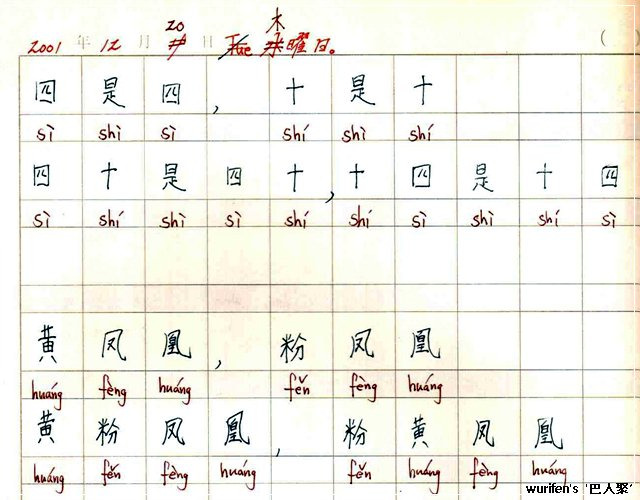 20 木
2001 年 12 月 日 Tue 曜日。 ( )
四是四,十是十
sì shì sì shí shì shí
四十是四十,十四是十四
sì shí shì sì shí shí sì shì shí sì
黄凤凰,粉凤凰
huáng fèng huáng fěn fèng huáng
黄粉凤凰,粉黄凤凰
huáng fěn fèng huáng fěn huáng fèng huáng
wurifen's '巴人聚'